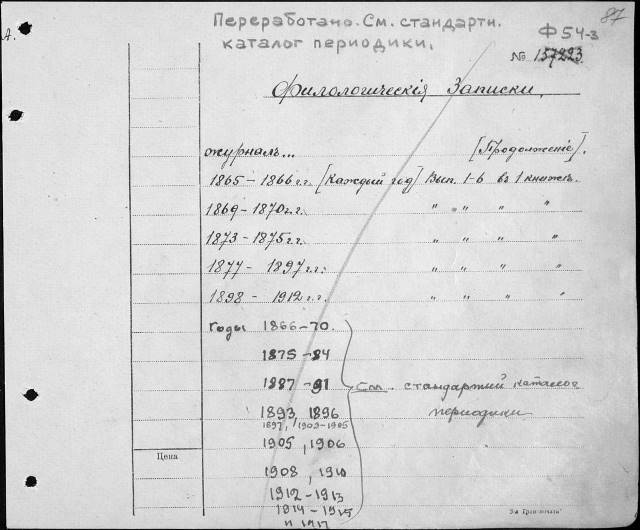 87
Переработано. См. стандартн.
каталог периодики.
А.
Ф 54-3
№ 157223.
Филологическія Записки.
журналъ... [Продолженіе].
1865-1866 г.г. [Каждый год] Вып. 1-6 въ 1 книжкѣ.
1869-1870 г.г. " " " " "
1873-1875 г.г. " " " "
1877-1897 г.г. " " " "
1898-1912 г.г. " " " "
Годы 1866-70.
1875-84
1887-91 См. стандартний каталог
1893, 1896 периодики
1897, 1902-1905
1905, 1906
Цена
1908, 1910
1912-1913
1914-1915
и 1917